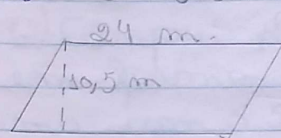 24 m.
10,5 m